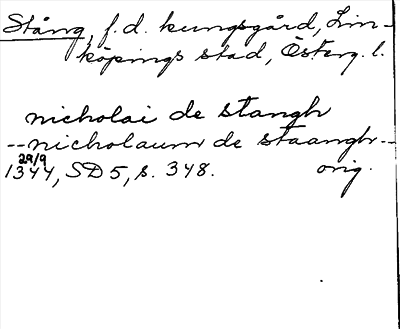 Stång, f.d. kungsgård, Lin-
köpings stad, Österg. l.
nicholai de stangh
-- nicholaum de staangh --
29/9
1344, SD 5, s. 348. orig.